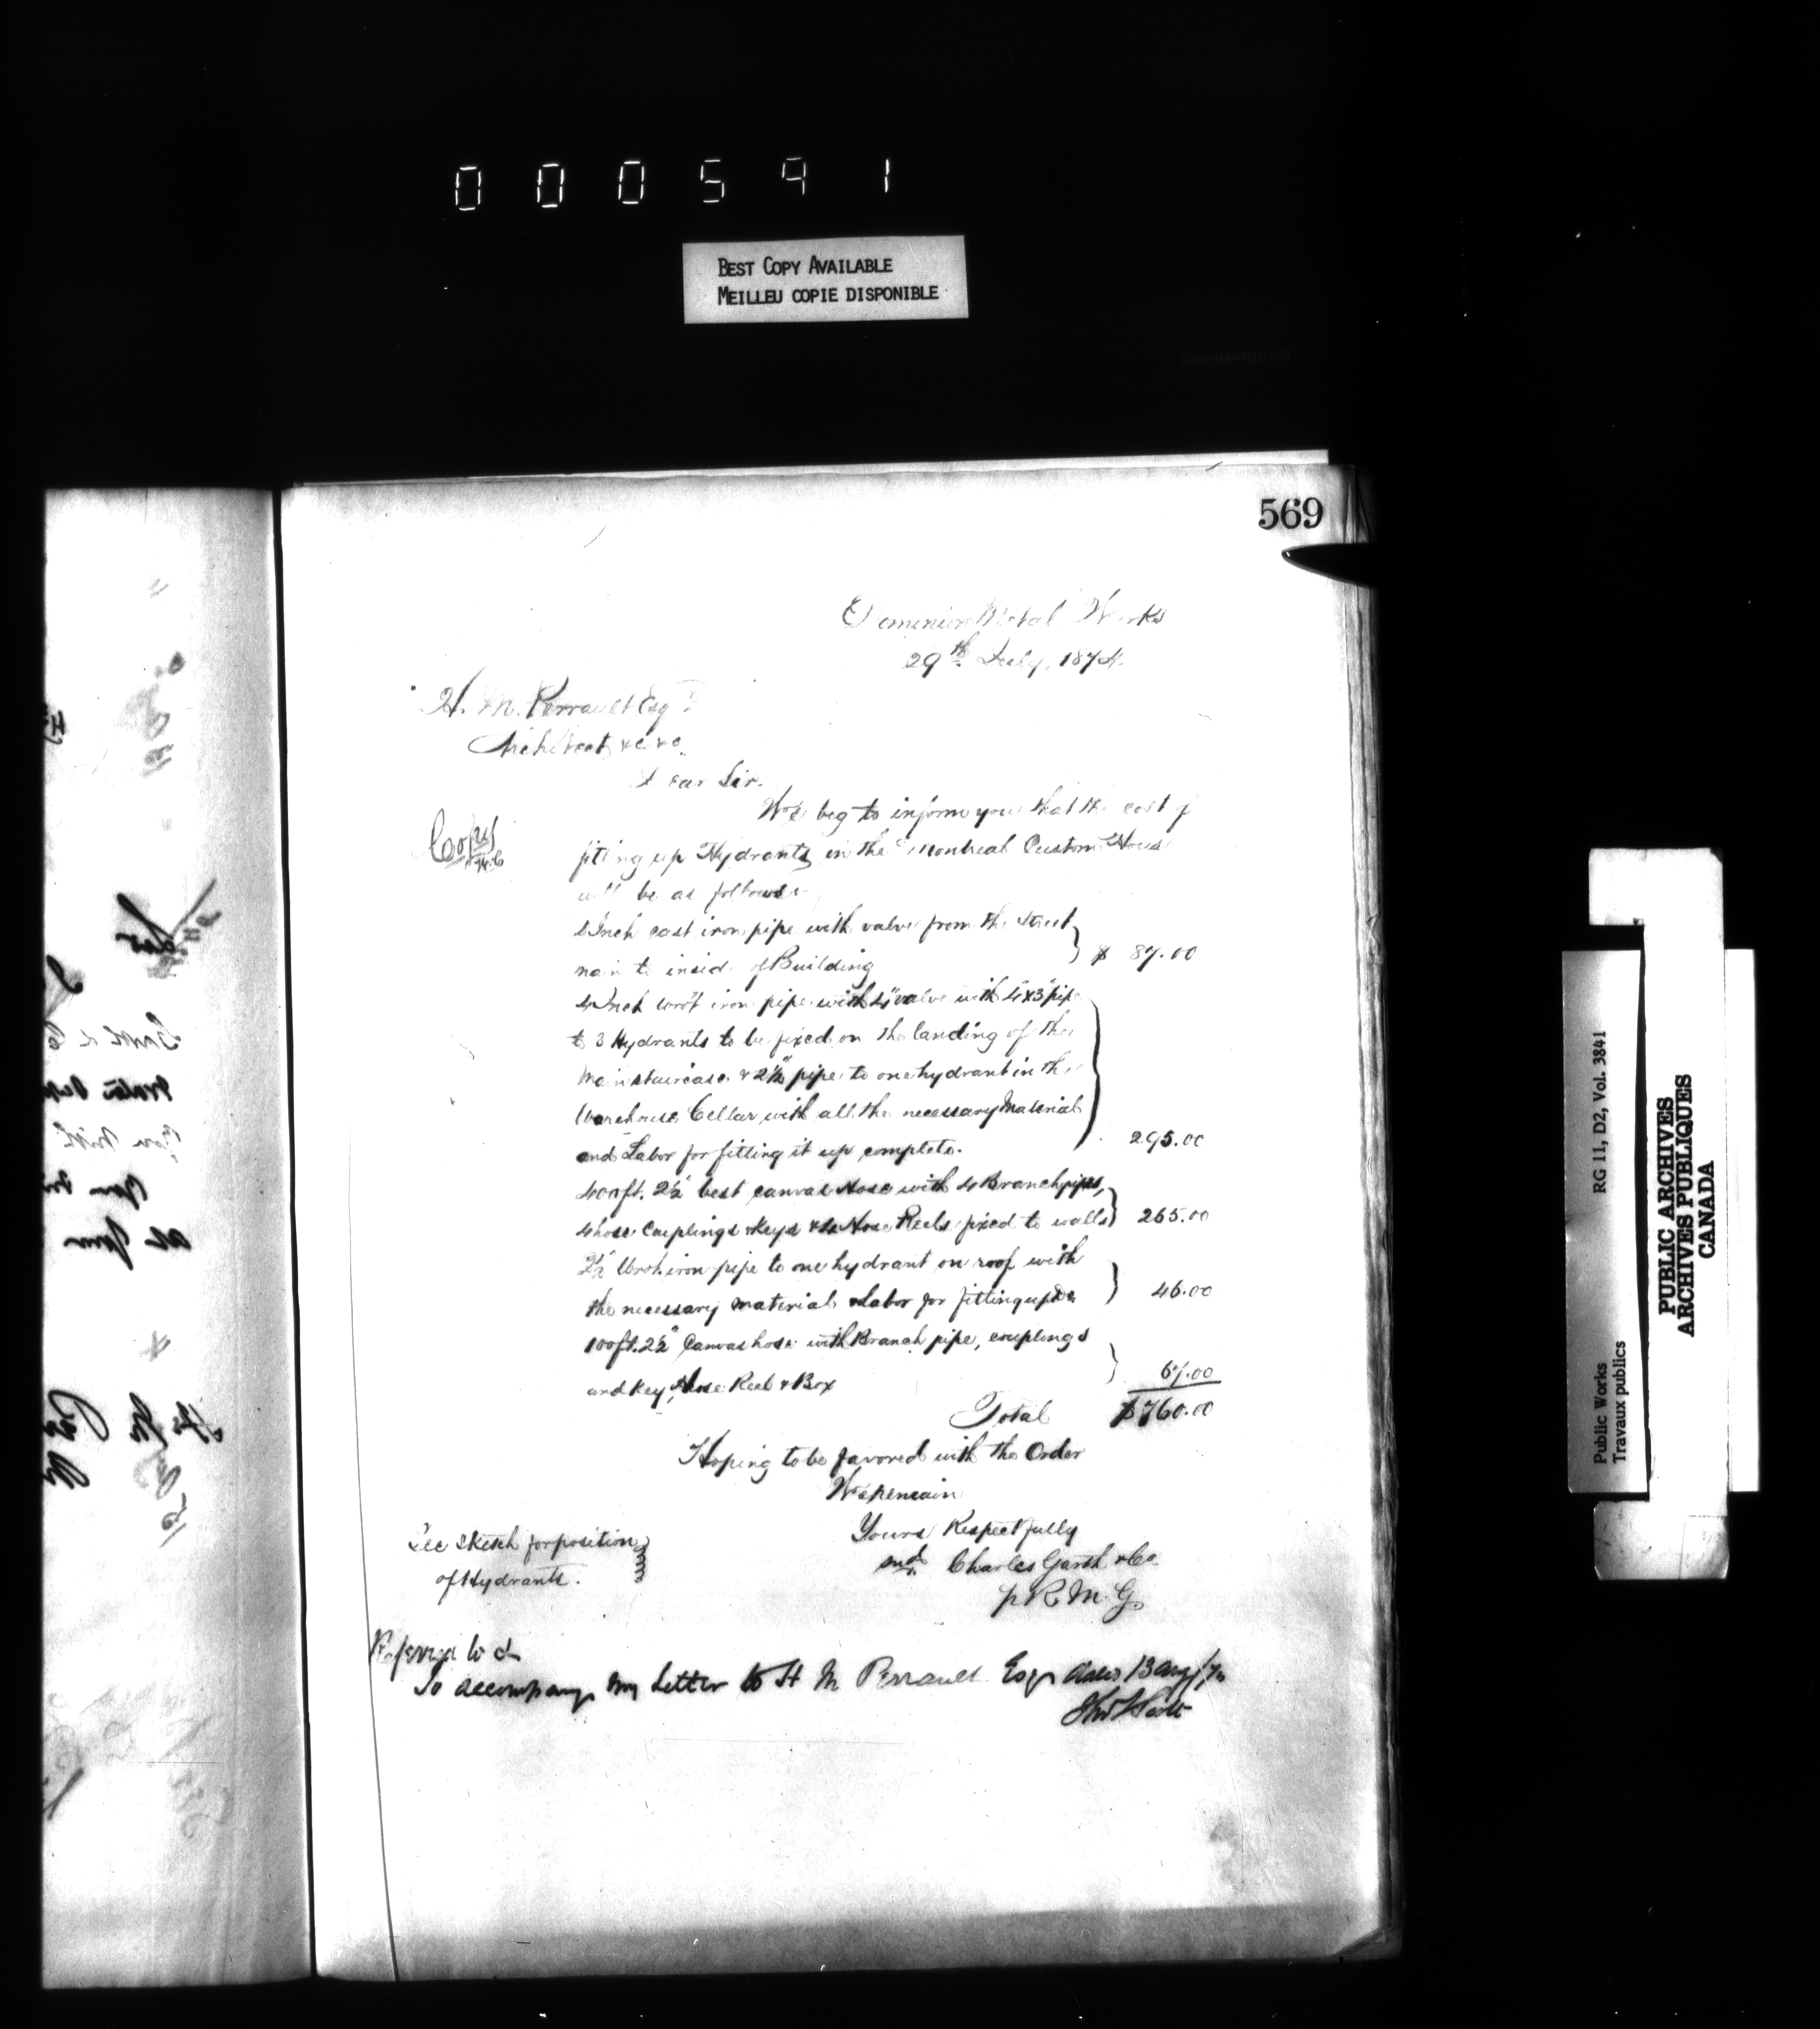 000591
BEST COPY AVAILABLE
MEILLEU COPIE DISPONIBLE
569
Dominion Metal Works
29th July, 1874.
H. M. Perrault Esqr
Architect &c &c
Dear Sir.
We beg to inform you that the cost of
Copy
fitting up Hydrants in the Montreal Custom House
will be as follows:
4 Inch cast iron pipe with valve from the Street
main to inside of Building } $ 87.00
4 Inch wrot iron pipe with 4" valve with 4"x3" pipe
to 3 Hydrants to be fixed on the landing of the
Main staircase & 2½" pipe to one hydrant in the
Warehouse Cellar with all the necessary Material
and Labor for fitting it up complete. } 295.00
400 ft. 2½" best canvas Hose with 4 Branch pipes,
4 hose Couplings & Keys & 4 Hose Reels fixed to walls } 265.00
2½" Wrot iron pipe to one hydrant on roof with
the necessary material & Labor for fitting up &c } 46.00
100 ft. 2½" Canvas hose with Branch pipe, couplings
and Key, Hose Reel & Box } 67.00
Total $760.00
Hoping to be favored with the Order
We remain
Yours Respectfully
See Sketch for position
of Hydrants.
sngd Charles Garth & Co.
p R. M. G.
Referred to &
To accompany my Letter to H M Perrault Esqr dated 13 Aug/74
Thos S Scott
Public Works RG 11, D2, Vol. 3841
Travaux publics
PUBLIC ARCHIVES
ARCHIVES PUBLIQUES
CANADA